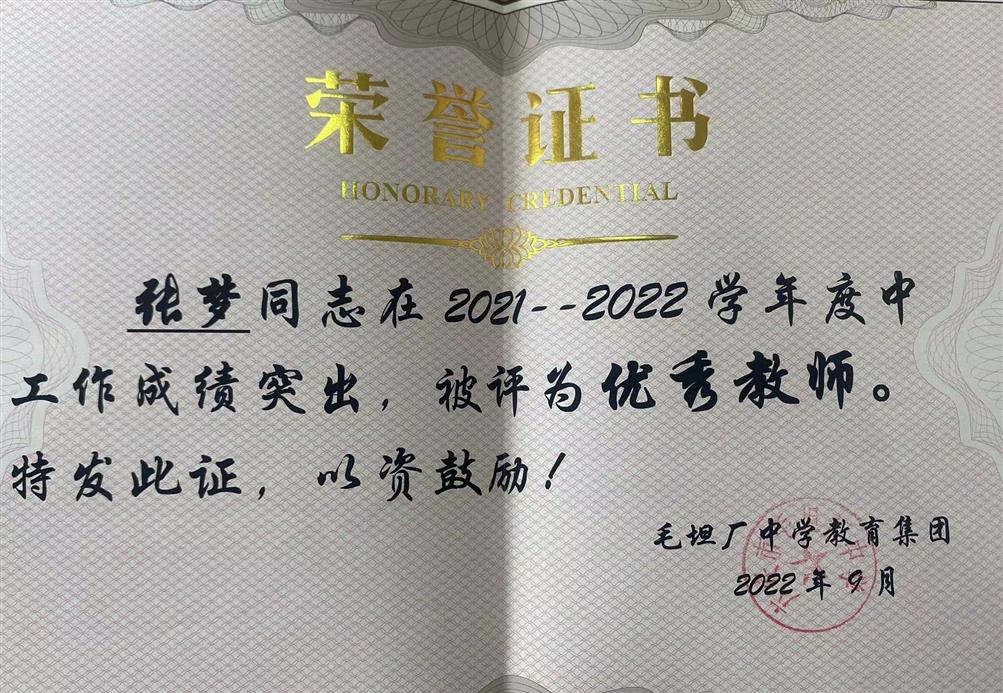 荣誉证书
HONORARY CREDENTIAL
张梦同志在2021--2022学年度中
工作成绩突出，被评为优秀教师。
特发此证，以资鼓励！
毛坦厂中学教育集团
2022年9月